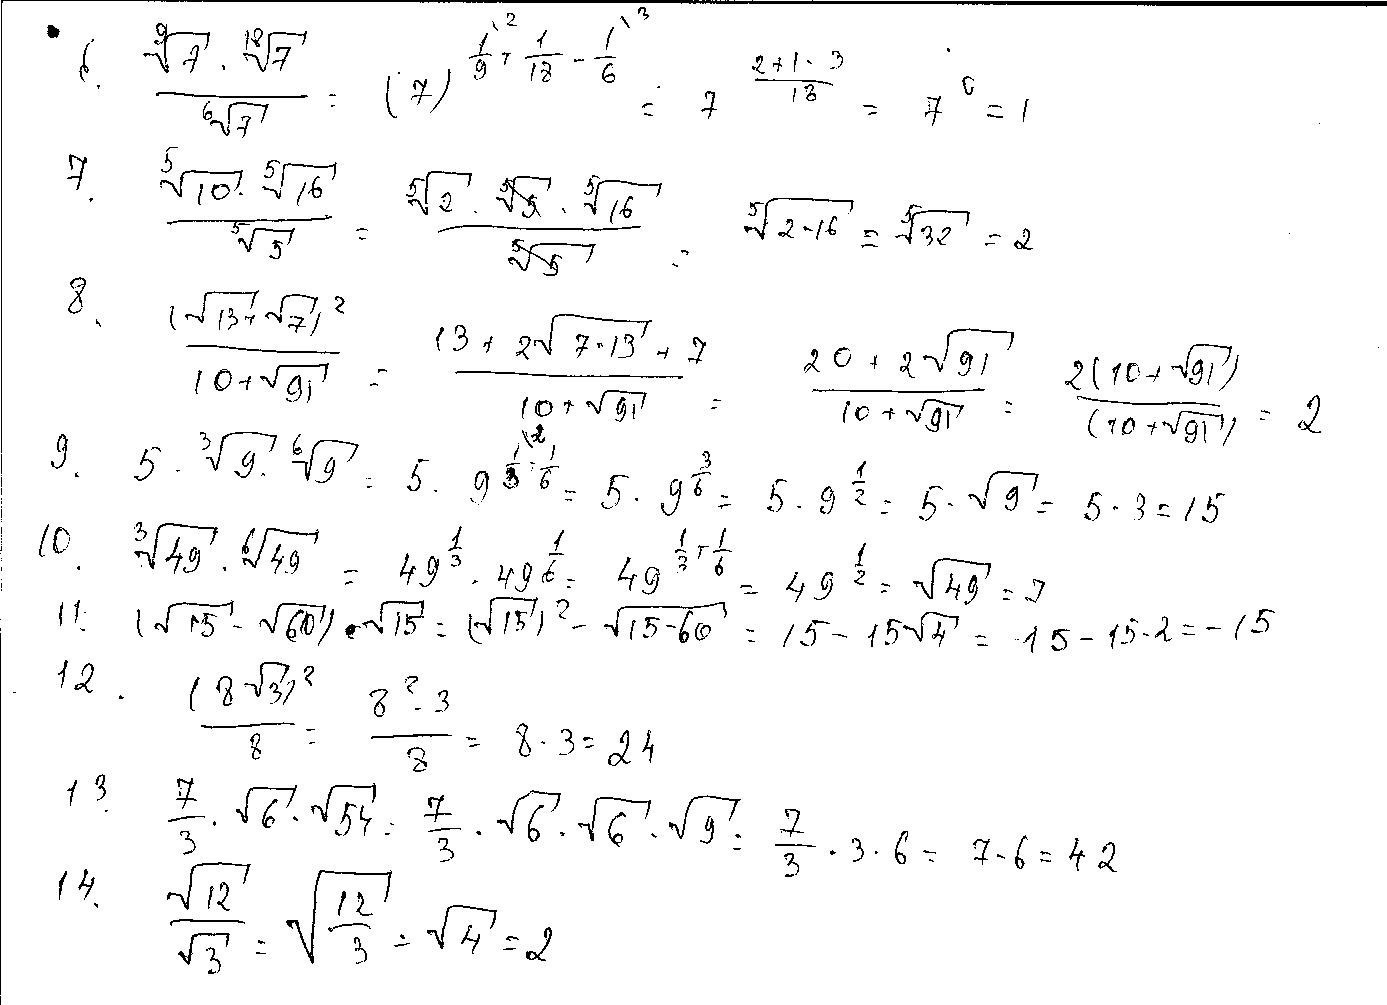 6. \frac{\sqrt[9]{7} · \sqrt[18]{7}}{\sqrt[6]{7}} = (7)^{\frac{1}{9} + \frac{1}{18} - \frac{1}{6}} = 7^{\frac{2+1-3}{18}} = 7^0 = 1
7. \frac{\sqrt[5]{10} · \sqrt[5]{16}}{\sqrt[5]{5}} = \frac{\sqrt[5]{2} · \sqrt[5]{5} · \sqrt[5]{16}}{\sqrt[5]{5}} = \sqrt[5]{2·16} = \sqrt[5]{32} = 2
8. \frac{(\sqrt{13}+\sqrt{7})^2}{10+\sqrt{91}} = \frac{13+2\sqrt{7·13}+7}{10+\sqrt{91}} = \frac{20+2\sqrt{91}}{10+\sqrt{91}} = \frac{2(10+\sqrt{91})}{(10+\sqrt{91})} = 2
9. 5 · \sqrt[3]{9} · \sqrt[6]{9} = 5 · 9^{\frac{1}{3}+\frac{1}{6}} = 5 · 9^{\frac{3}{6}} = 5 · 9^{\frac{1}{2}} = 5 · \sqrt{9} = 5 · 3 = 15
10. \sqrt[3]{49} · \sqrt[6]{49} = 49^{\frac{1}{3}} · 49^{\frac{1}{6}} = 49^{\frac{1}{3}+\frac{1}{6}} = 49^{\frac{1}{2}} = \sqrt{49} = 7
11. (\sqrt{15} - \sqrt{60}) · \sqrt{15} = (\sqrt{15})^2 - \sqrt{15·60} = 15 - 15\sqrt{4} = 15 - 15·2 = -15
12. \frac{(8\sqrt{3})^2}{8} = \frac{8^2·3}{8} = 8·3 = 24
13. \frac{7}{3} · \sqrt{6} · \sqrt{54} = \frac{7}{3} · \sqrt{6} · \sqrt{6} · \sqrt{9} = \frac{7}{3} · 3 · 6 = 7·6 = 42
14. \frac{\sqrt{12}}{\sqrt{3}} = \sqrt{\frac{12}{3}} = \sqrt{4} = 2